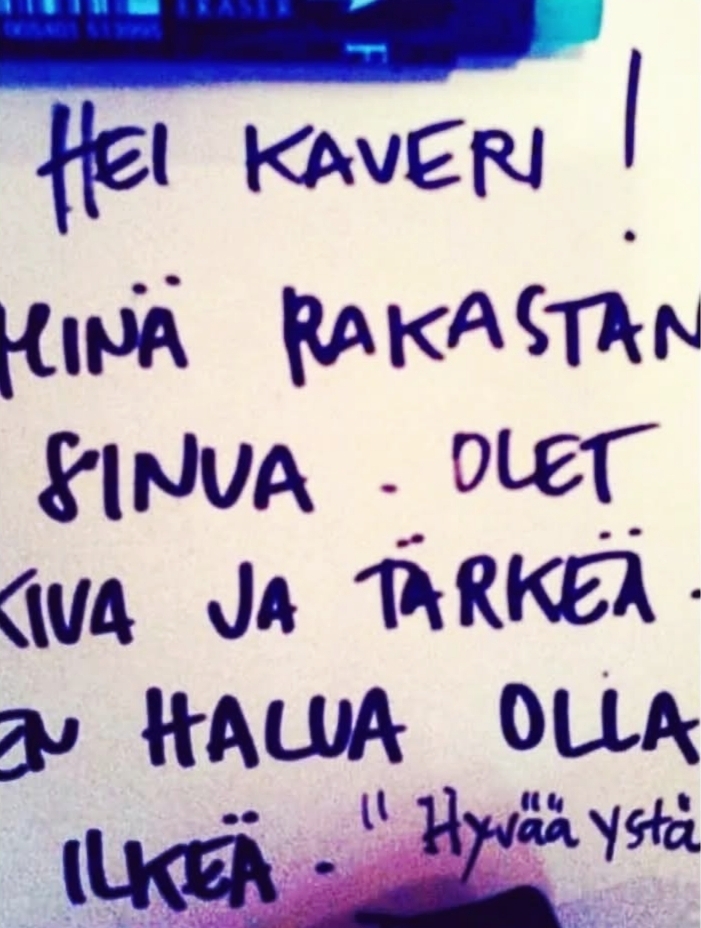 ERASER
HEI KAVERI !
MINÄ RAKASTAN
SINUA . OLET
KIVA JA TÄRKEÄ .
EN HALUA OLLA
ILKEÄ . " Hyvää ystä